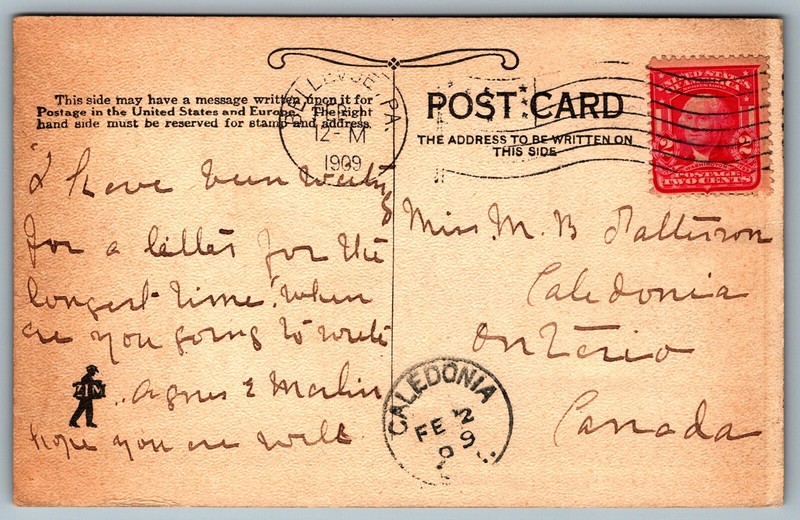 This side may have a message written upon it for
Postage in the United States and Europe. The right
hand side must be reserved for stamp and address.
BELLEVUE, PA.
12-M
1909
POST CARD
THE ADDRESS TO BE WRITTEN ON
THIS SIDE
UNITED STATES
2 2
WASHINGTON
POSTAGE
TWO CENTS
I have been waiting
for a letter for the
longest time. When
are you going to write
ZIM
Agnes E Martin
hope you are well
Miss. M. B Patterson
Caledonia
Ontario
Canada
CALEDONIA
FE 2
09